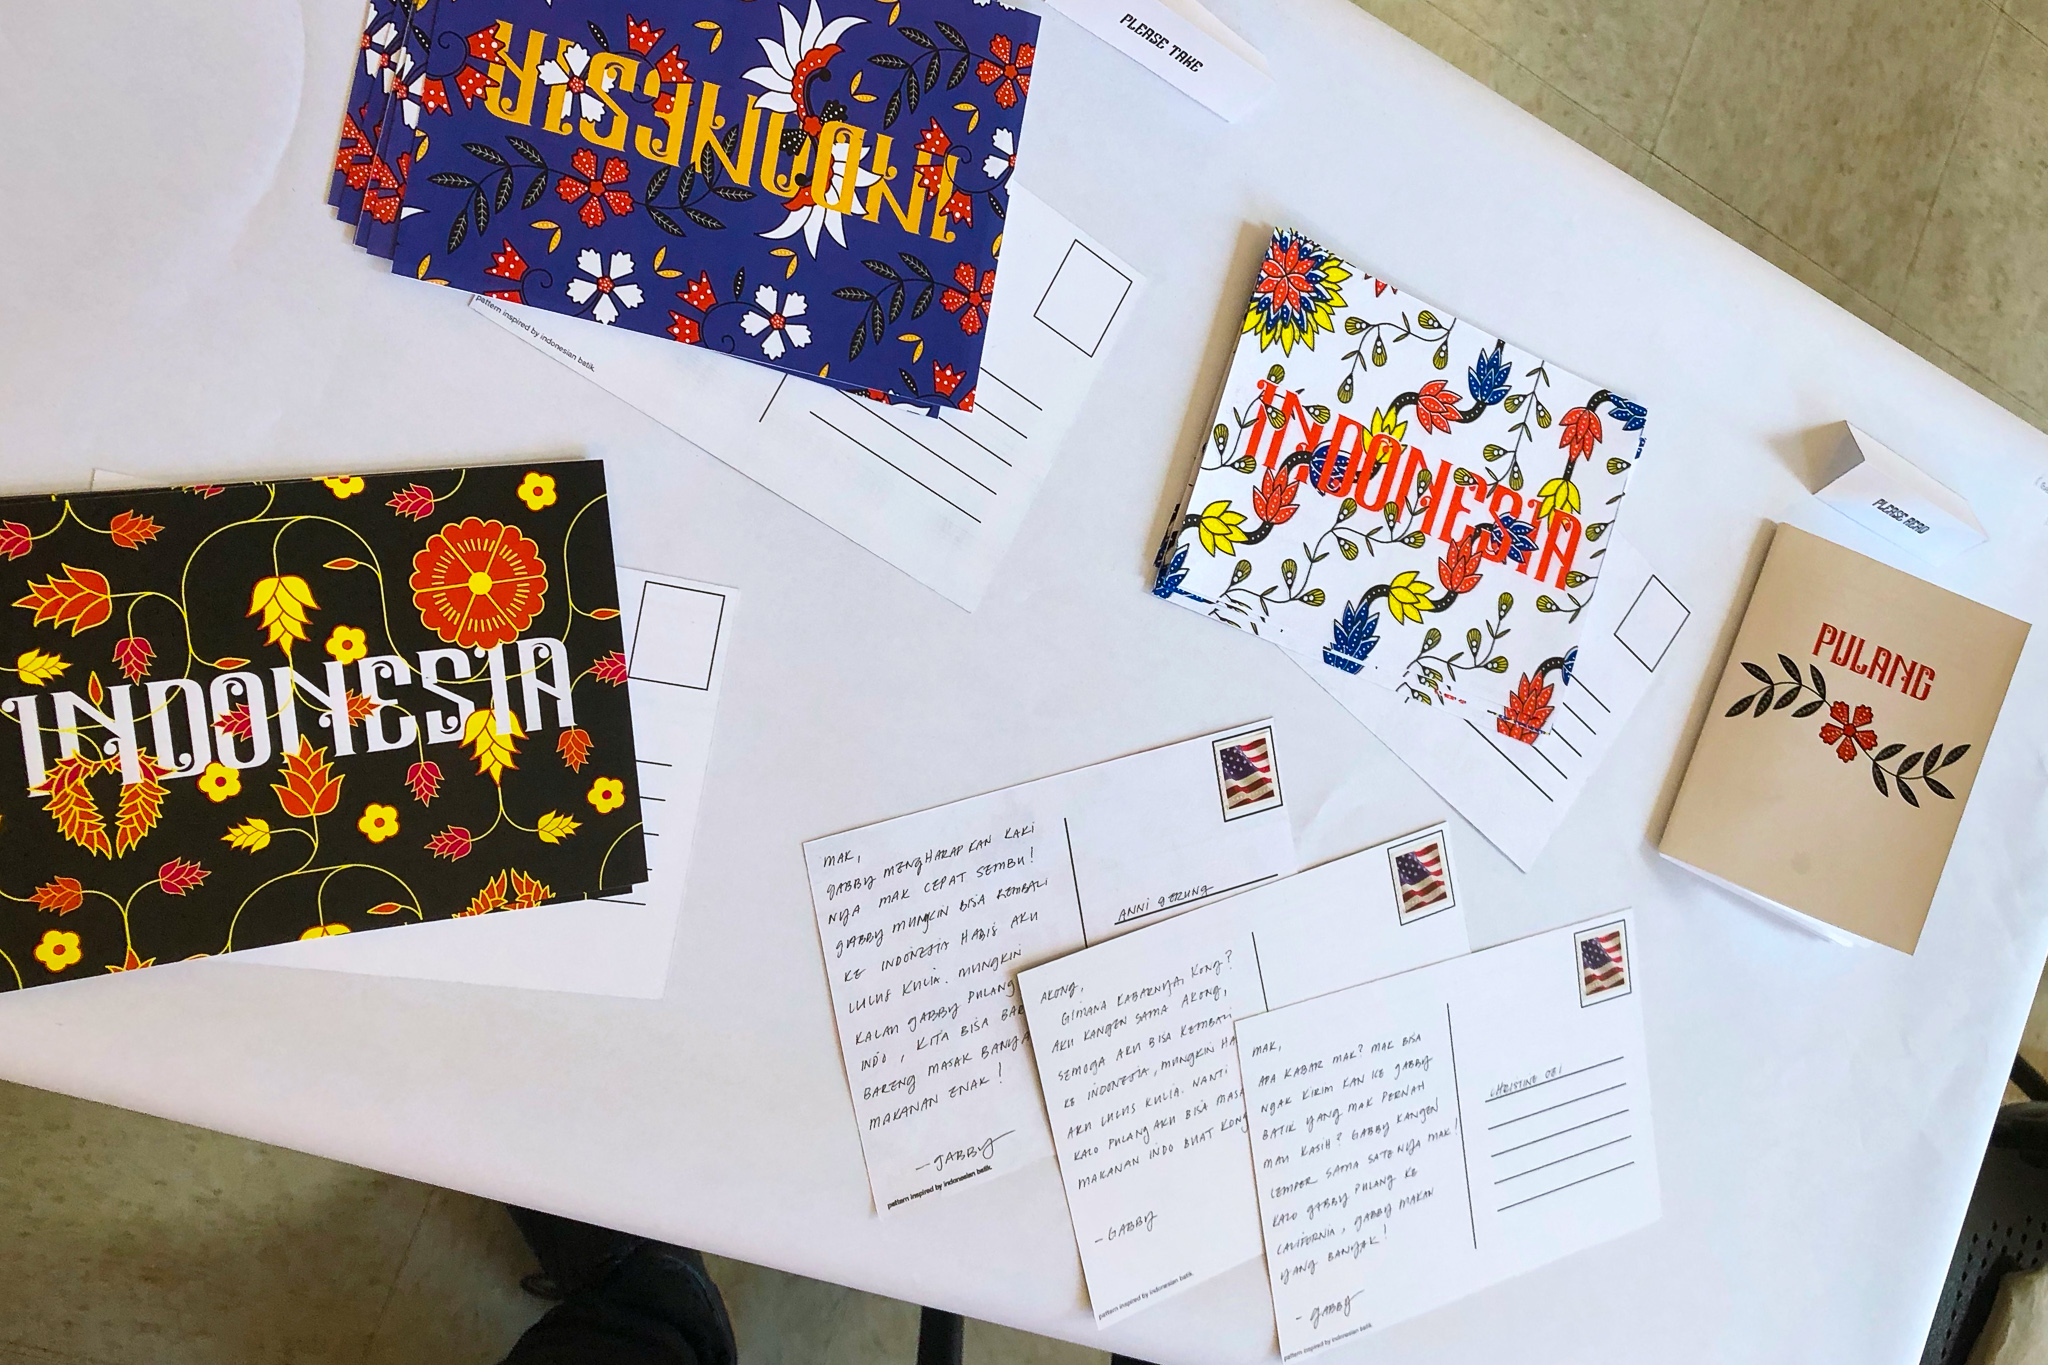 PLEASE TAKE
INDONESIA
pattern inspired by indonesian batik.
INDONESIA
PLEASE READ
PULANG
INDONESIA
MAK,
GABBY MENGHARAPKAN KAKI
NYA MAK CEPAT SEMBU!
GABBY MUNGKIN BISA KEMBALI
KE INDONESIA HABIS AKU
LULUS KULIA. MUNGKIN
KALAU GABBY PULANG
INDO, KITA BISA BAR
BARENG MASAK BANYA
MAKANAN ENAK!
– GABBY
pattern inspired by indonesian batik.
ANNI GERUNG
AKONG,
GIMANA KABARNYA, KONG?
AKU KANGEN SAMA AKONG,
SEMOGA AKU BISA KEMBALI
KE INDONESIA, MUNGKIN HA
AKU LULUS KULIA. NANTI
KALO PULANG AKU BISA MASA
MAKANAN INDO BUAT KONG
– GABBY
pattern inspired by indonesian batik.
MAK,
APA KABAR MAK? MAK BISA
NGAK KIRIM KAN KE GABBY
BATIK YANG MAK PERNAH
MAU KASIH? GABBY KANGEN
LEMPER SAMA SATENYA MAK!
KALO GABBY PULANG KE
CALIFORNIA, GABBY MAKAN
YANG BANYAK!
– GABBY
pattern inspired by indonesian batik.
CHRISTINE OEI